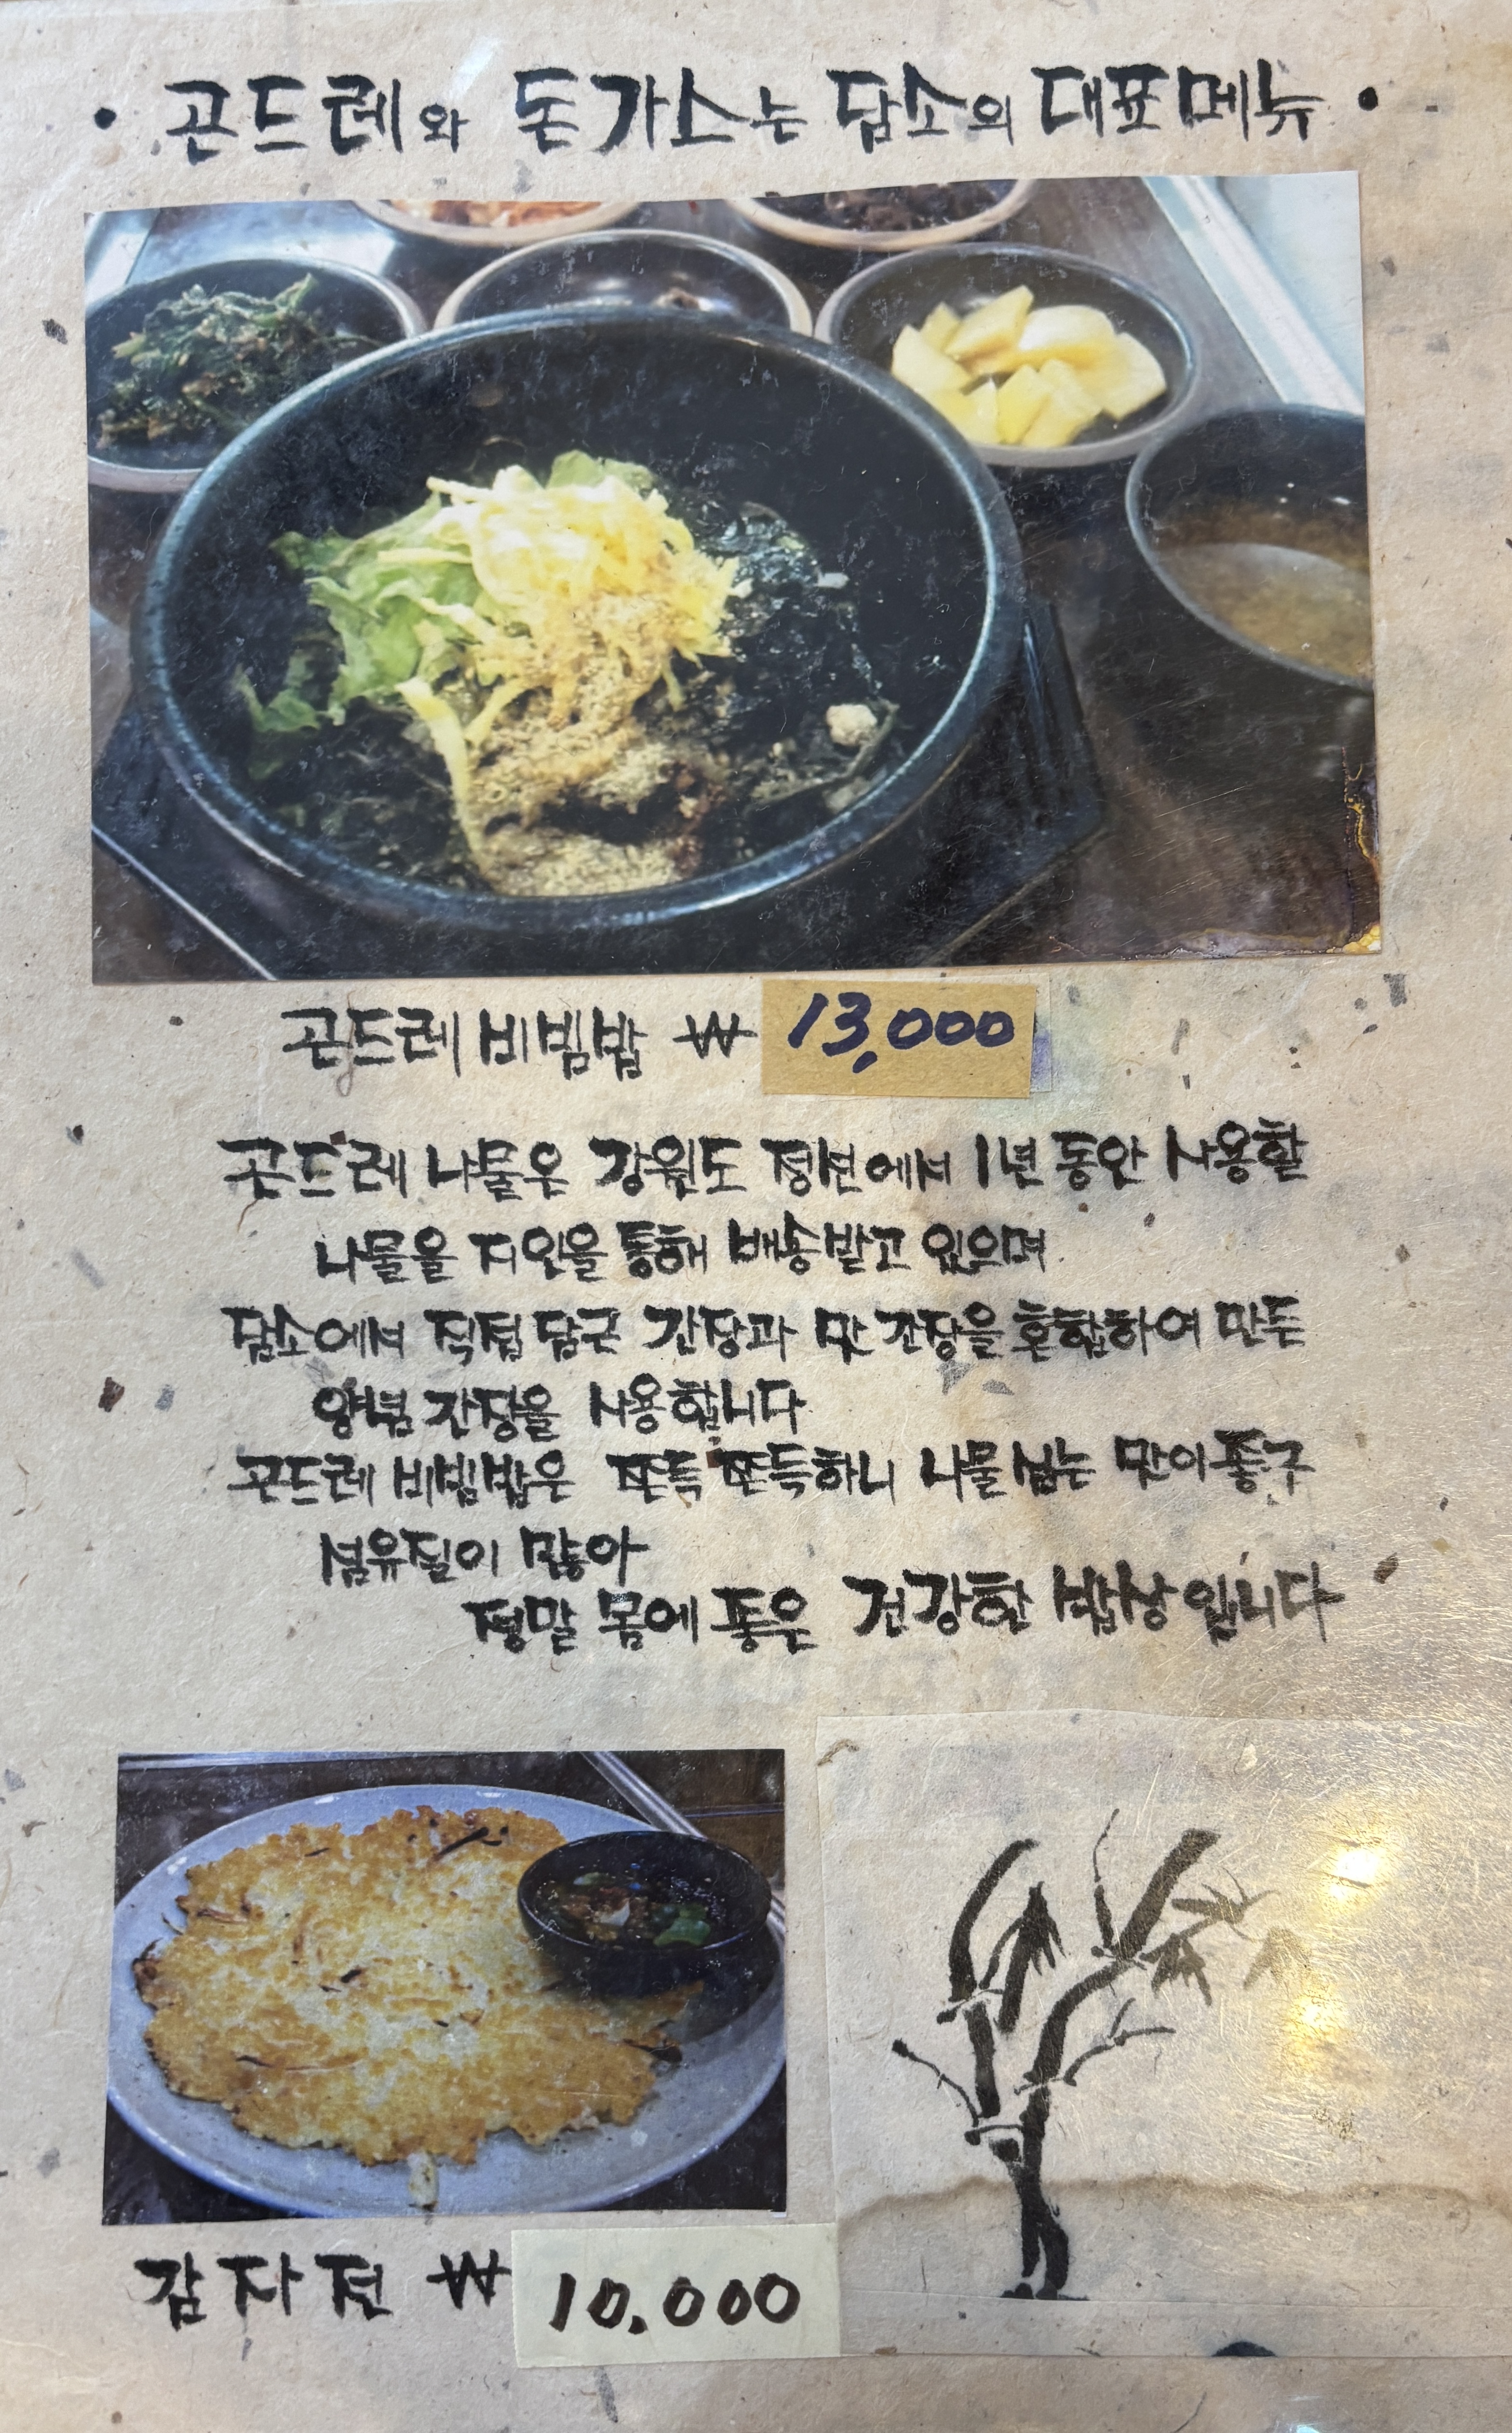 • 곤드레와 돈가스는 담소의 대표메뉴 •
곤드레 비빔밥 ₩ 13,000
곤드레 나물은 강원도 정선에서 1년 동안 사용할
나물을 지인을 통해 배송받고 있으며
담소에서 직접 담근 간장과 맛 간장을 혼합하여 만든
양념 간장을 사용합니다
곤드레 비빔밥은 쫀득 쫀득하니 나물 씹는 맛이 좋구
섬유질이 많아
정말 몸에 좋은 건강한 밥상 입니다
감자전 ₩ 10.000